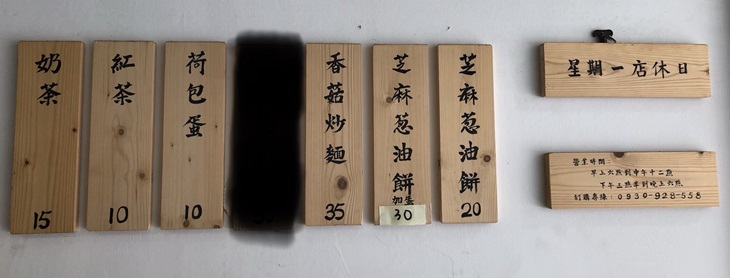 芝麻葱油餅
20
芝麻葱油餅
加蛋
30
香菇炒麵
35
荷包蛋
10
紅茶
10
奶茶
15
星期一店休日
營業時間：
早上六點到中午十二點
下午三點半到晚上六點
訂購專線：0930-928-558